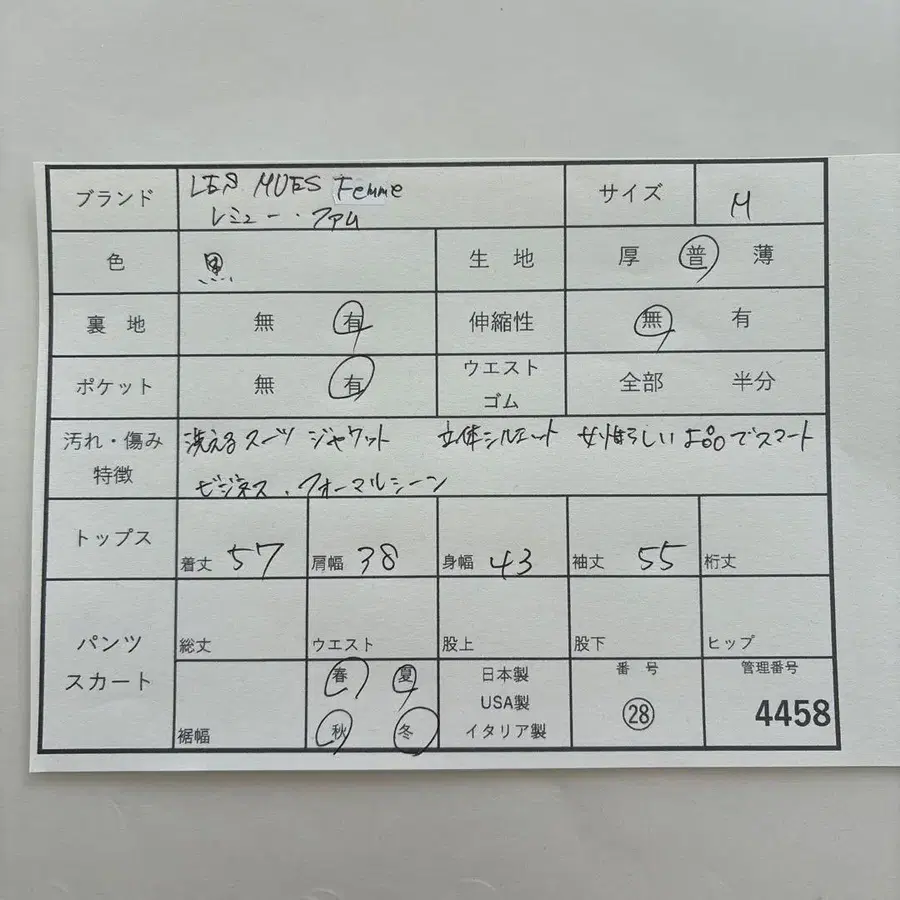 ブランド LES MUES Femme サイズ M
レミュー・ファム
色 黒 生地 厚 普 薄
裏地 無 有 伸縮性 無 有
ポケット 無 有 ウエストゴム 全部 半分
汚れ・傷み 洗えるスーツ ジャケット 立体シルエット でスマート
特徴 ビジネス、フォーマルシーン
トップス 着丈 57 肩幅 38 身幅 43 袖丈 55 裄丈
パンツ 総丈 ウエスト 股上 股下 ヒップ
スカート 裾幅 春 夏 秋 冬 日本製 USA製 イタリア製 番号 28 管理番号 4458